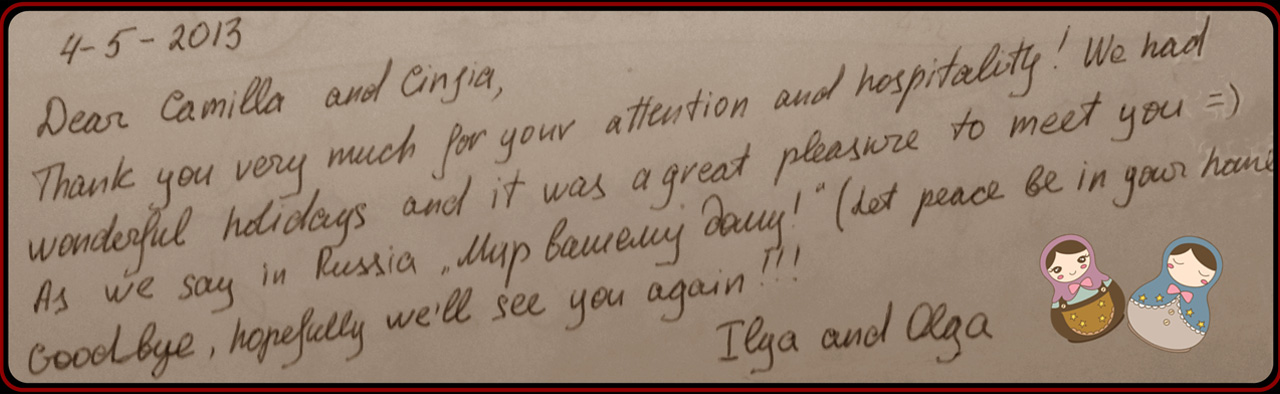 4-5-2013
Dear Camilla and Cinzia,
Thank you very much for your attention and hospitality! We had
wonderful holidays and it was a great pleasure to meet you =)
As we say in Russia „Мир вашему дому!“ (Let peace be in your home
Goodbye, hopefully we'll see you again!!!
Ilya and Olga